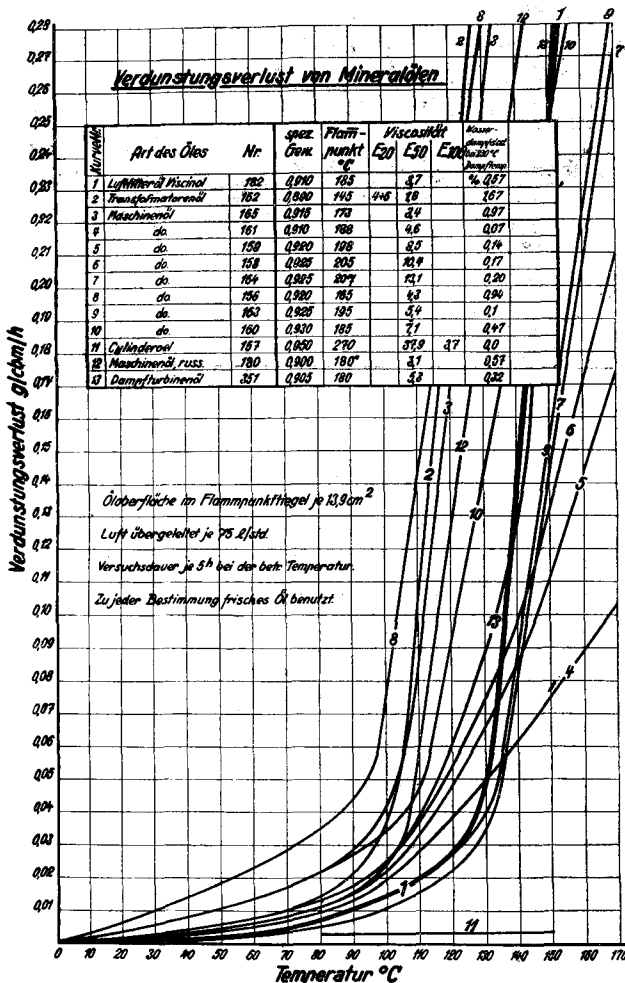 Verdunstungsverlust von Mineralölen
Kurve Nr. Art des Öles Nr. spez. Gew. Flam-punkt °C Viscosität E20 E50 E100
1 Luftfilteröl Viscinol 182 0,910 185 8,7 % 0,57
2 Transformatorenöl 162 0,890 145 1,8 1,67
3 Maschinenöl 165 0,915 173 3,4 0,97
4 do. 161 0,910 188 4,6 0,07
5 do. 159 0,920 198 8,5 0,14
6 do. 158 0,925 205 10,4 0,17
7 do. 164 0,925 207 13,1 0,20
8 do. 156 0,920 165 4,3 0,94
9 do. 163 0,925 195 5,4 0,1
10 do. 160 0,930 185 7,1 0,47
11 Cylinderoel 157 0,950 270 37,9 3,7 0,0
12 Maschinenöl, russ. 180 0,900 180° 3,1 0,57
13 Dampfturbinenöl 351 0,905 180 5,3 0,32
Ölöberfläche im Flammpunkttiegel je 13,9 cm²
Luft übergeleitet je 75 l/std.
Versuchsdauer je 5h bei der betr. Temperatur.
Zu jeder Bestimmung frisches Öl benutzt.
Verdunstungsverlust g/cbm/h
0,28
0,27
0,26
0,25
0,24
0,23
0,22
0,21
0,20
0,19
0,18
0,17
0,16
0,15
0,14
0,13
0,12
0,11
0,10
0,09
0,08
0,07
0,06
0,05
0,04
0,03
0,02
0,01
0 10 20 30 40 50 60 70 80 90 100 110 120 130 140 150 160 170
Temperatur °C
2 8 3 12 13 1 10 9 7
3
7
2 12 9 6
5
10
8 13
4
1
11